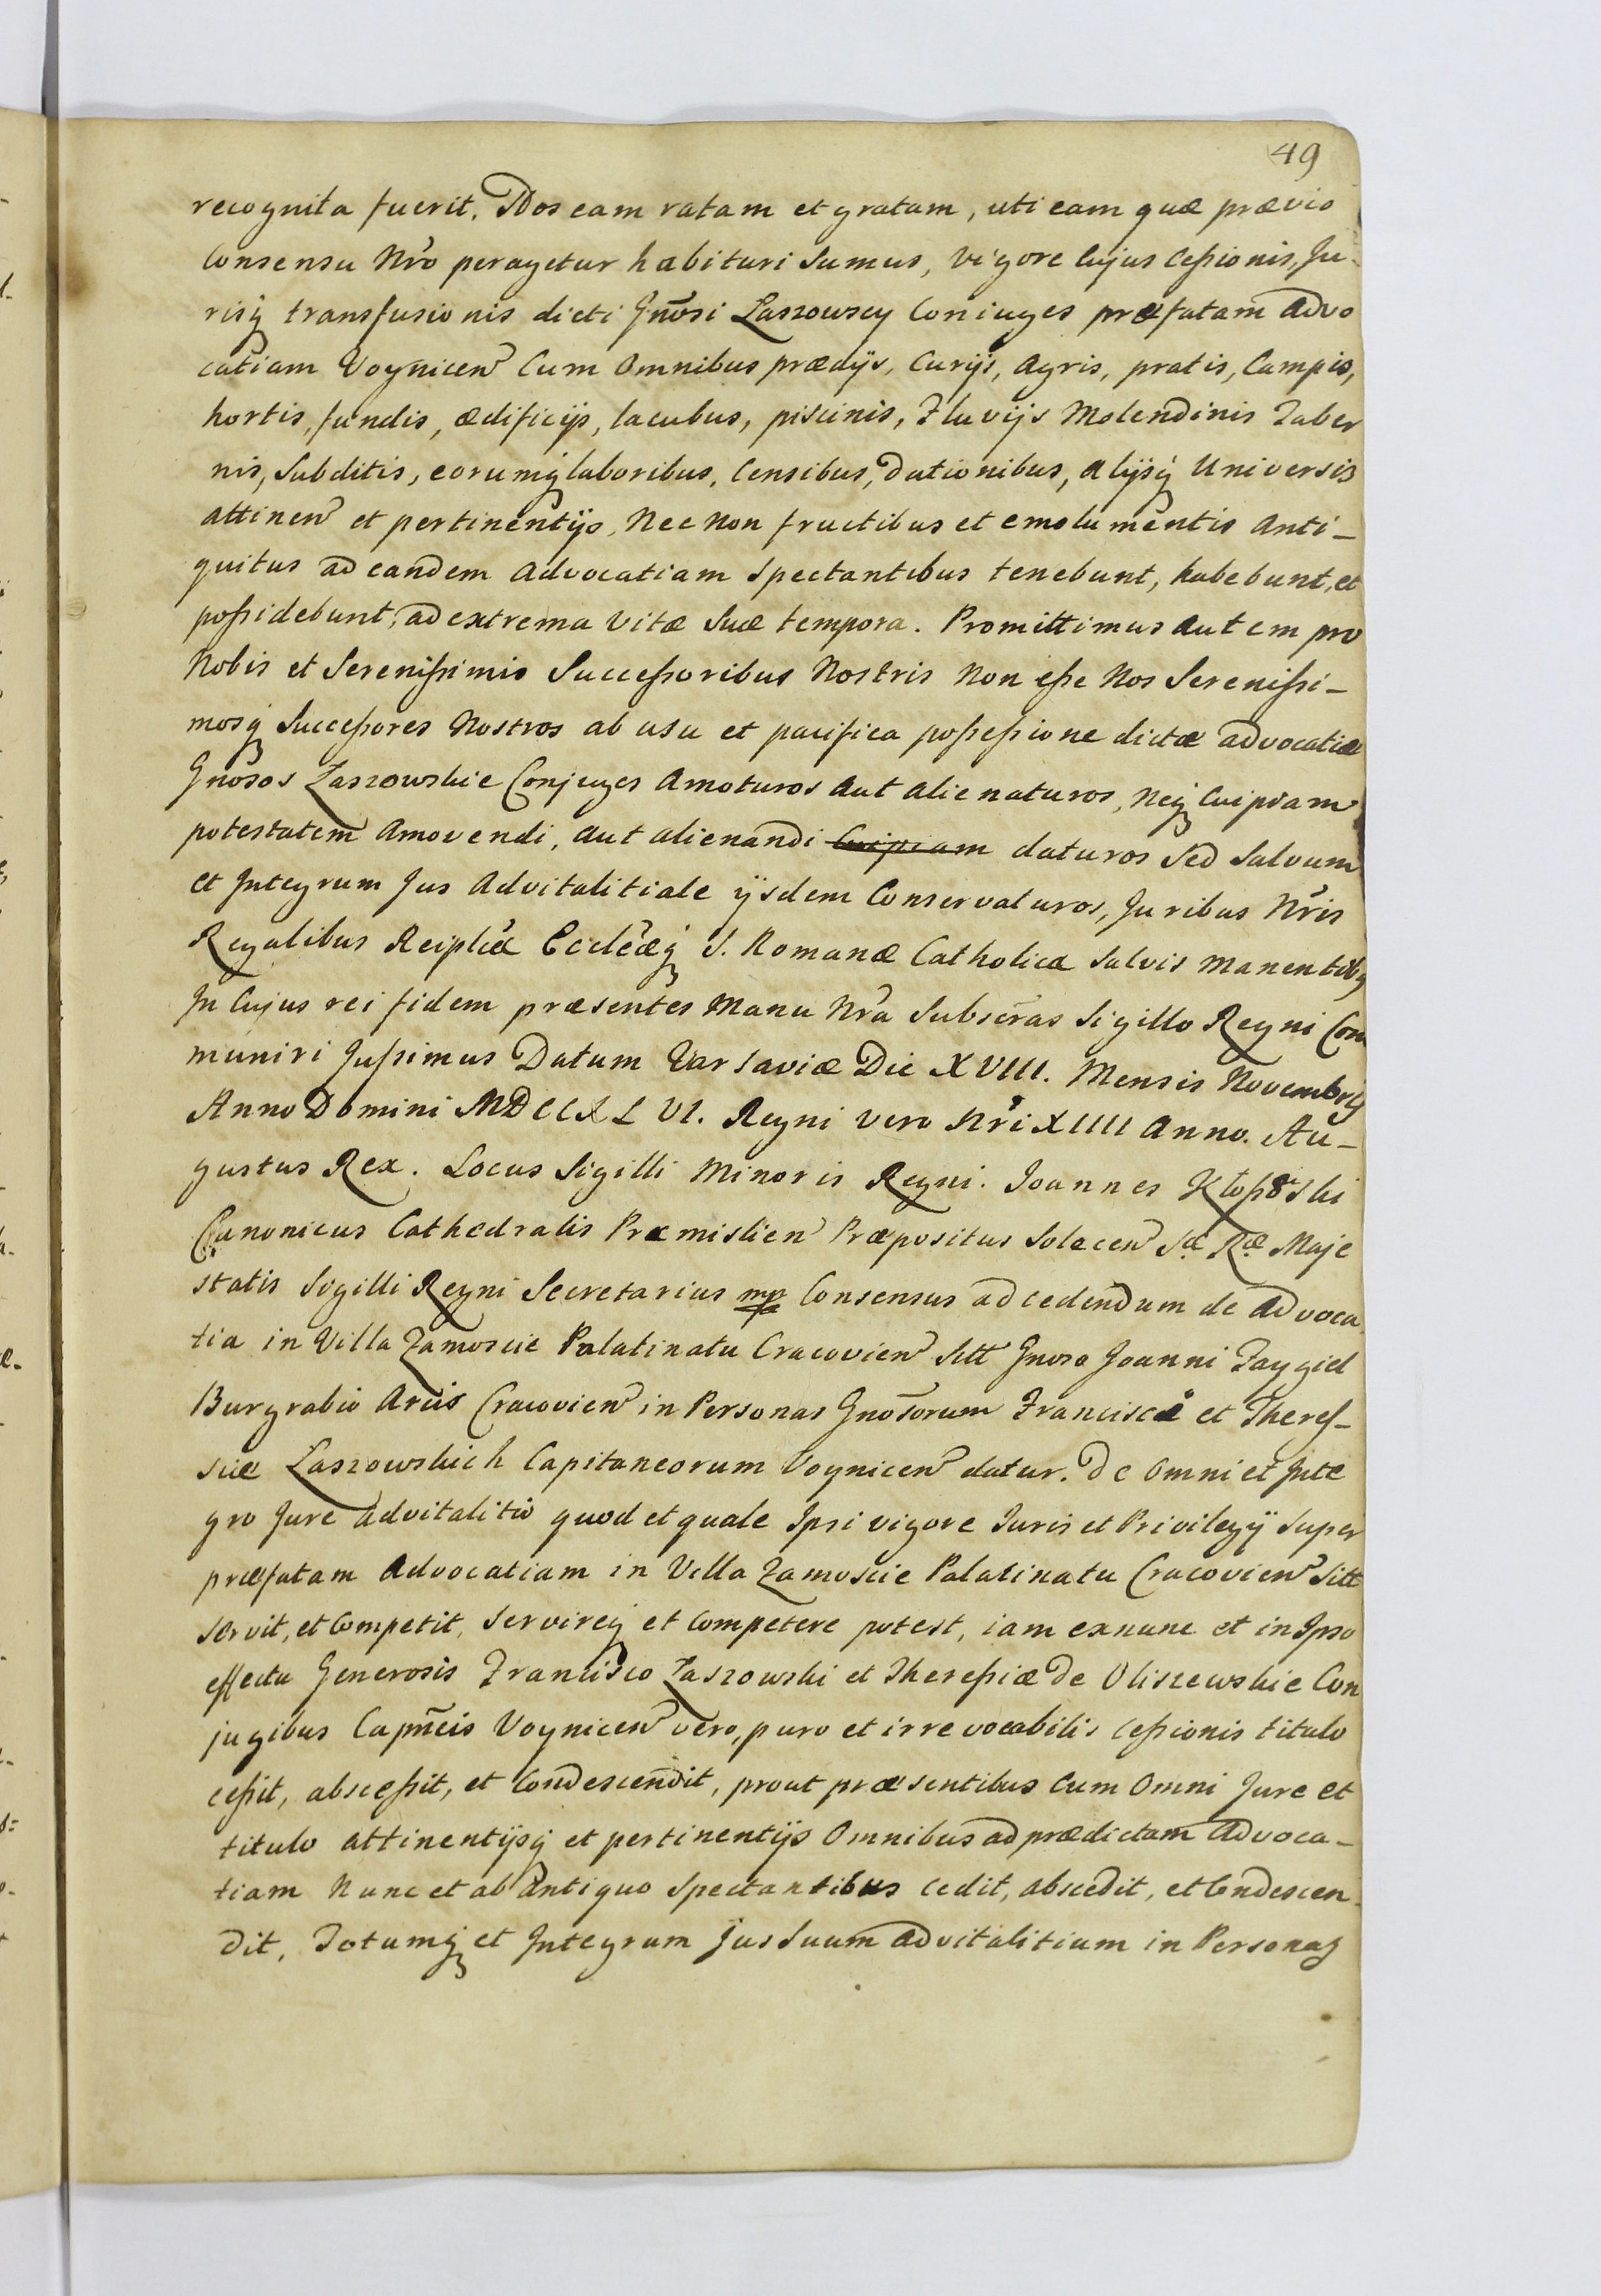 49
recognita fuerit. Nos eam ratam et gratam, uti eam quæ prævio
Consensu Nr̃o peragetur habituri Sumus, Vigore Cujus Ceßionis, Ju-
risq; transfusionis dicti Gnõsi Laszowscy Coniuges præfatam Advo
catiam Voynicen̄ Cum Omnibus prædijs, Curijs, Agris, pratis, Campis,
hortis, fundis, ædificijs, lacubus, piscinis, Fluvijs Molendinis Taber
nis, Subditis, eorumq; laboribus, Censibus, Dationibus, alijsq; Universis
attinen̄ et pertinentijs, Nec non fructibus et emolumentis Anti-
quitus ad eandem Advocatiam Spectantibus tenebunt, habebunt, et
poßidebunt, ad extrema Vitæ Suæ tempora. Promittimus autem pro
Nobis et Sereniß imis Succeßoribus Nostris Non eße Nos Serenißi-
mosq; Succeßores Nostros ab usu et pacifica poßeßione dictæ advocatiæ
Gnosos Laszowskie Conjuges Amoturos Aut Alienaturos, Neq; Cuipiam
potestatem Amovendi, Aut alienandi Cuipiam daturos Sed Salvum
et Integrum Jus Advitalitiale ijsdem Conservaturos, Juribus Nr̃is
Regalibus Reiplicæ Ecclẽæq; S. Romanæ Catholicæ Salvis manentibq
In Cujus rei fidem præsentes Manu Nr̃a Subscr̃as Sigillo Regni Com
muniri Jußimus Datum Varsaviæ Die XVIII. Mensis Novembris
Anno Domini MDCCXLVI. Regni Vero Nr̃i XIIII Anno. Au-
gustus Rex. Locus Sigilli Minoris Regni. Joannes Kłoßoski
Canonicus Cathedralis Præmislien̄ Præpositus Solecen̄ Sæ Ræ Maje
statis Sigilli Regni Secretarius mp Consensus ad cedendum de Advoca
tia in Villa Zamoscie Palatinatu Cracovien̄ Sitt Gnoso Joanni Taygiel
Burgrabio Arcis Cracovien̄ in Personas Gnõsorum Francisci et Theres-
siæ Laszowskich Capitaneorum Voynicen̄ datur. De Omni et Inte
gro Jure Advitalitio quod et quale Ipsi vigore Juris et Privilegij Super
præfatam Advocatiam in Villa Zamoscie Palatinatu Cracovien̄ Sitt
servit, et Competit, servireq; et Competere potest, iam exnunc et in Ipso
effectu Generosis Francisco Laszowski et Thereßiæ De Oliszewskie Con
jugibus Capnẽis Voynicen̄ vero, puro et irrevocabilis Ceßionis titulo
ceßit, absceßit, et Condescendit, prout præsentibus Cum Omni Jure et
titulo attinentijsq; et pertinentijs Omnibus ad prædictam Advoca-
tiam Nunc et ab Antiquo Spectantibus cedit, abscedit, et Condescen
dit, Totumq; et Integrum Jus Suum Advitalitium in Personas